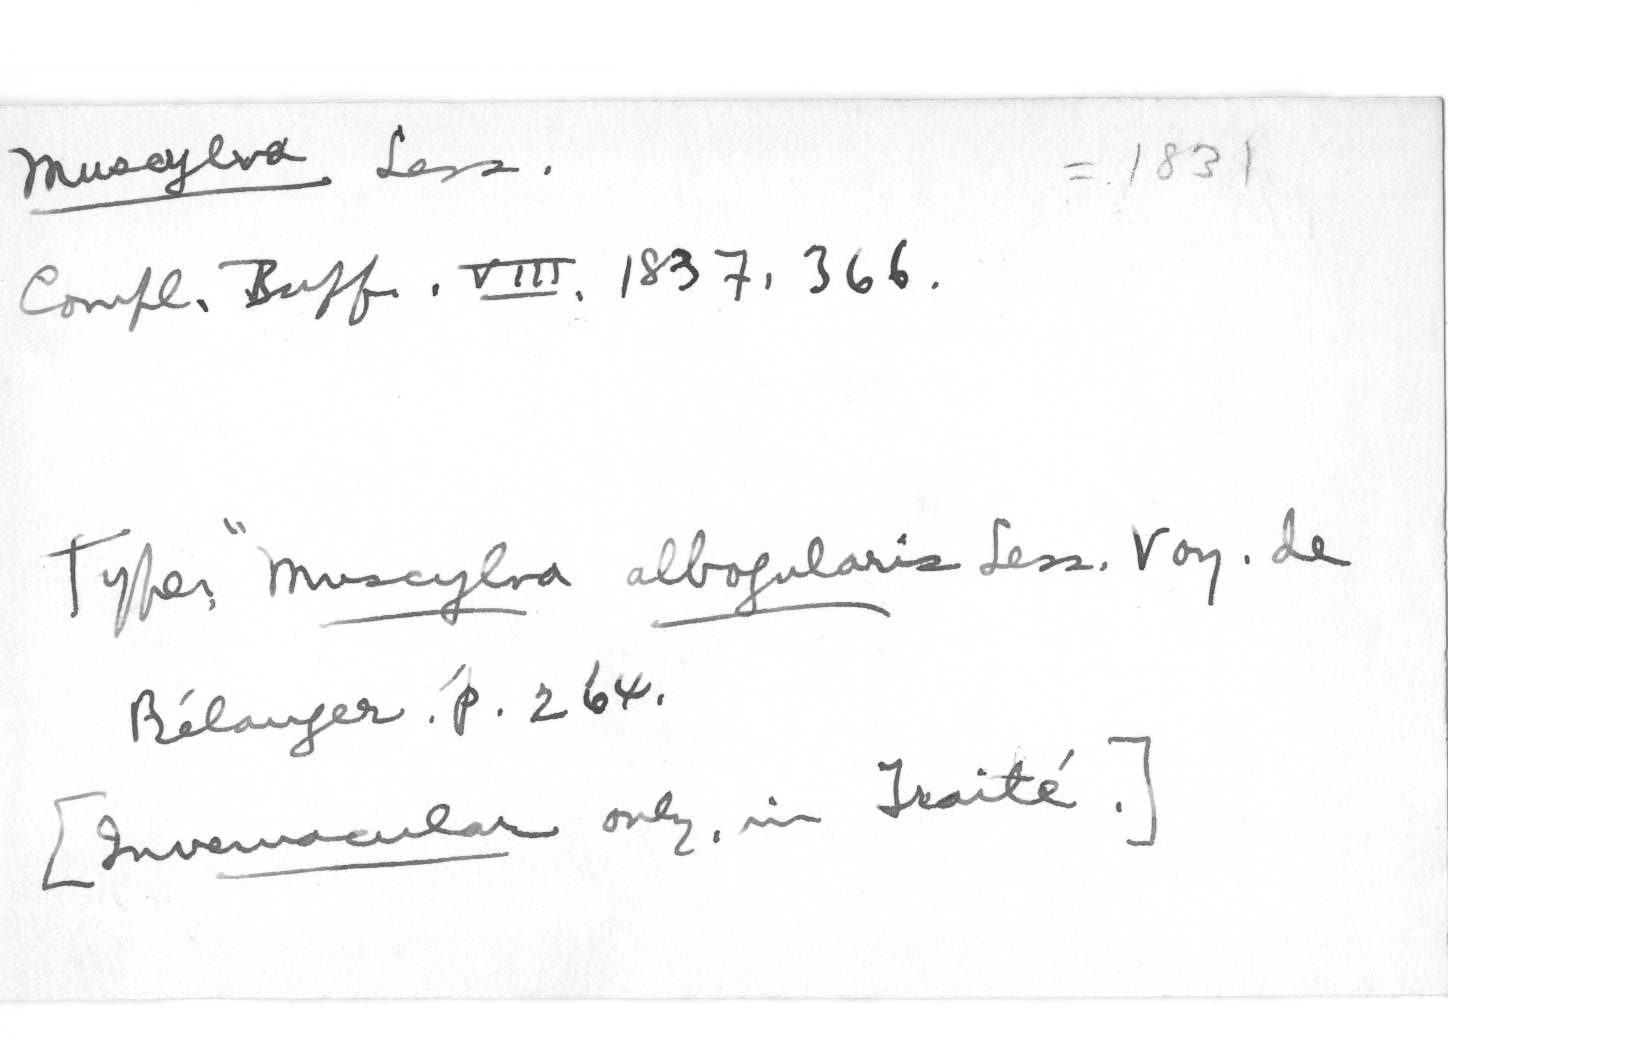 Muscylva Less. = 1831
Compl. Buff. VIII. 1837, 366.
Type, "Muscylva albogularis Less. Voy. de
Bélanger. p. 264.
[In vernacular only, in Traité.]